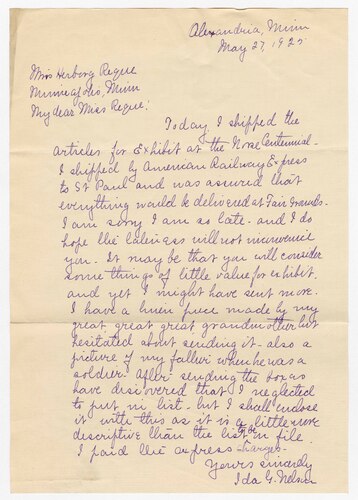 Alexandria, Minn
May 27, 1925
Miss Herborg Reque
Minneapolis, Minn
My dear Miss Reque:
Today I shipped the
articles for Exhibit at the Norse Centennial-
I shipped by American Railway Express
to St Paul and was assured that
everything would be delivered at Fair Grounds-
I am sorry I am so late- and I do
hope the lateness will not inconvenience
you. It may be that you will consider
some things of little value for exhibit.
and yet I might have sent more.
I have a linen piece made by my
great, great, great grandmother but
hesitated about sending it- also a
picture of my father when he was a
soldier. After sending the box as
have discovered that I neglected
to put in list- but I shall enclose
it with this as it is a little more
descriptive than the list to be in file.
I paid the express charges-
Yours sincerely
Ida G. Nelson